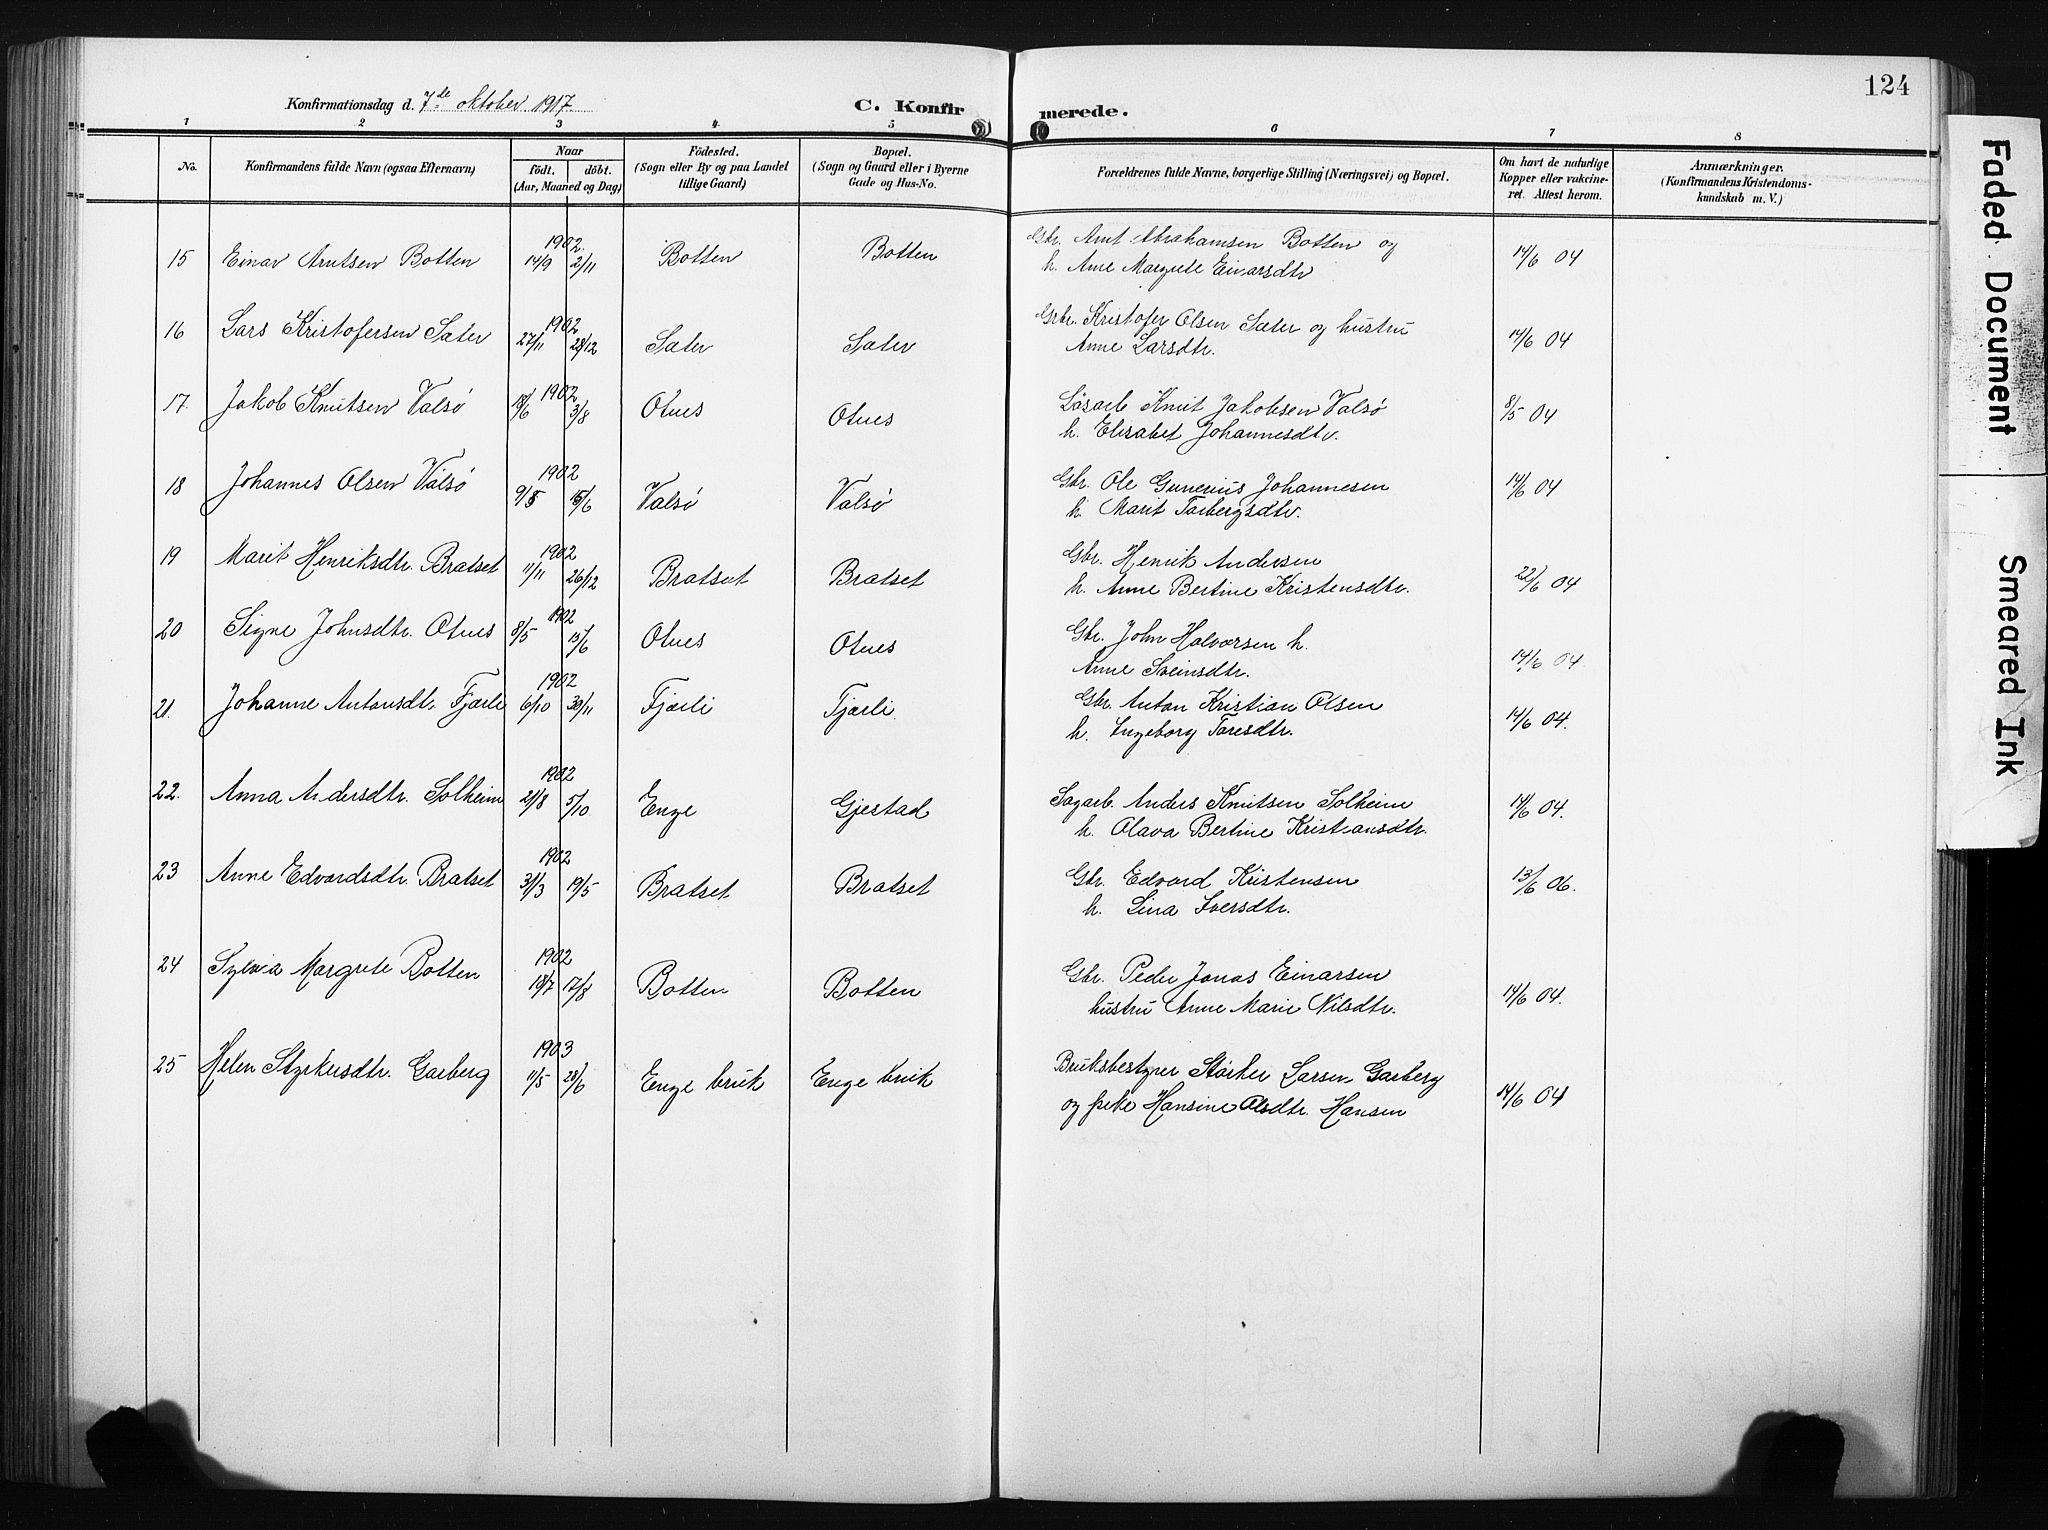 124
Konfirmationsdag d. 7de oktober 1917.
C. Konfirmerede.
1 2 3 4 5 6 7 8
No.
Konfirmandens fulde Navn (ogsaa Efternavn)
Naar
födt. döbt.
(Aar, Maaned og Dag)
Födested.
(Sogn eller By og paa Landet
tillige Gaard)
Bopæl.
(Sogn og Gaard eller i Byerne
Gade og Hus-No.
Forældrenes fulde Navne, borgerlige Stilling (Næringsvei) og Bopæl.
Om havt de naturlige
Kopper eller vakcine-
ret. Attest herom.
Anmærkninger.
(Konfirmandens Kristendoms-
kundskab m. V.)
15 Einar Arntsen Botten 1902 14/9 2/11 Botten Botten Gbr. Arnt Abrahamsen Botten og
h. Ane Margrete Einarsdtr 14/6 04
16 Lars Kristofersen Sæter 1902 27/11 28/12 Sæter Sæter Grbr. Kristofer Olsen Sæter og hustru
Anne Larsdtr. 14/6 04
17. Jakob Knutsen Valsø 1902 18/6 3/8 Otnes Otnes Løsarb Knut Jakobsen Valsø
h. Elisabet Johannesdtr. 8/5 04
18 Johannes Olsen Valsø 1902 9/5 15/6 Valsø Valsø Gbr. Ole Gunerius Johannesen
h. Marit Torbergsdtr. 14/6 04
19 Marit Henriksdtr. Bratset 1902 11/11 26/12 Bratset Bratset Gbr. Henrik Andersen
h. Anne Bertine Kristensdtr. 22/6 04
20 Signe Johnsdtr. Otnes 1902 8/5 15/6 Otnes Otnes Gbr. John Halvorsen h.
Anne Sveinsdtr. 14/6 04.
21. Johanne Antonsdtr. Fjærli 1902 6/10 30/11 Fjærli Fjærli Gbr. Anton Kristian Olsen
h. Ingeborg Toresdtr. 14/6 04.
22. Anna Andersdtr. Solheim 1902 21/8 5/10 Enge Gjestad Sagarb. Anders Knutsen Solheim
h. Olava Bertine Kristiansdtr. 14/6 04.
23 Anne Edvardsdtr. Bratset 1902 31/3 19/5 Bratset Bratset Gbr. Edvard Kristensen
h. Lina Iversdtr. 13/6 06.
24 Sylvia Margrete Botten 1902 18/7 17/8 Botten Botten Gbr. Peder Jonas Einarsen
hustru Anne Marie Nilsdtr. 14/6 04.
25 Helen Styrkersdtr. Garberg 1903 11/5 28/6 Enge bruk Enge bruk Bruksbestyrer Størker Larsen Garberg
og Hansine Olsdtr. Hansen 14/6 04
Faded Document
Smeared Ink